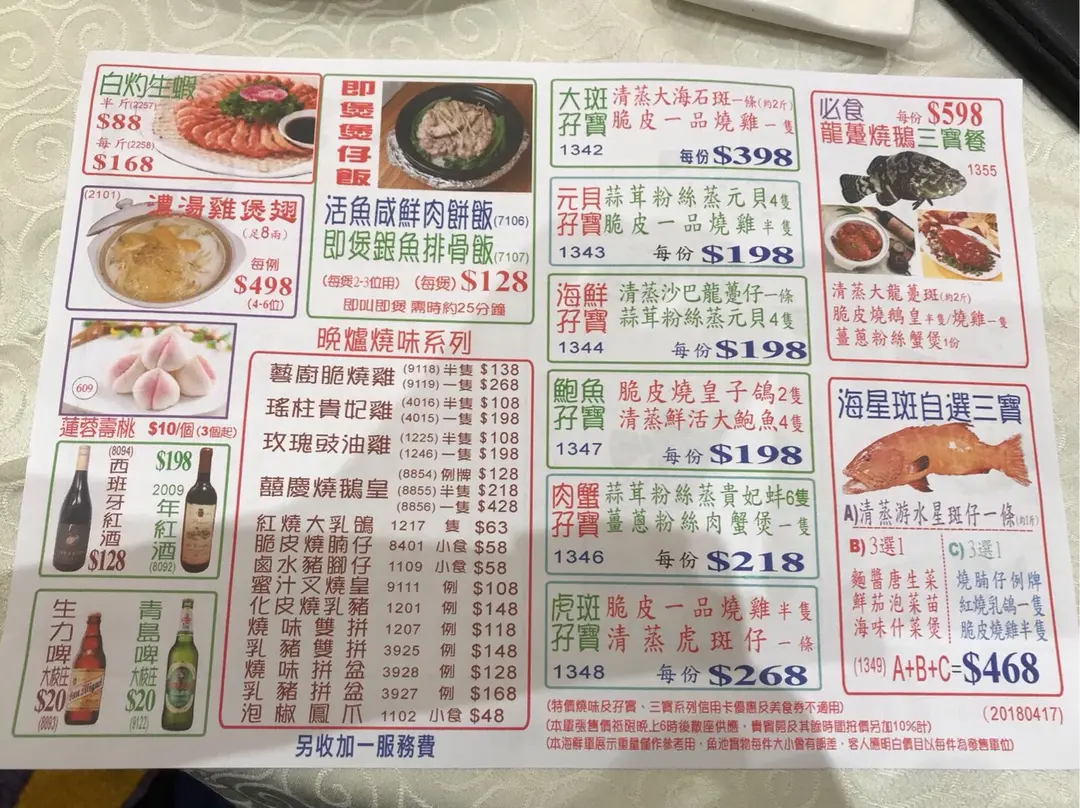 白灼生蝦
半斤(2257)
$88
每斤(2258)
$168
(2101)
濃湯雞煲翅
(足8兩)
每例
$498
(4-6位)
609
蓮蓉壽桃 $10/個(3個起)
(8094)
西班牙紅酒
$128
$198
2009年紅酒
(8092)
生力啤
大枝庄
$20
(8093)
青島啤
大枝庄
$20
(9122)
即煲煲仔飯
活魚咸鮮肉餅飯(7106)
即煲銀魚排骨飯(7107)
(每煲2-3位用) (每煲) $128
即叫即煲 需時約25分鐘
晚爐燒味系列
藝廚脆燒雞 (9118) 半隻 $138
(9119) 一隻 $268
瑤柱貴妃雞 (4016) 半隻 $108
(4015) 一隻 $198
玫瑰豉油雞 (1225) 半隻 $108
(1246) 一隻 $198
囍慶燒鵝皇 (8854) 例牌 $128
(8855) 半隻 $218
(8856) 一隻 $428
紅燒大乳鴿 1217 隻 $63
脆皮燒腩仔 8401 小食 $58
鹵水豬腳仔 1109 小食 $58
蜜汁叉燒皇 9111 例 $108
化皮燒乳豬 1201 例 $148
燒味雙拼 1207 例 $118
乳豬雙拼 3925 例 $148
燒味拼盆 3928 例 $128
乳豬拼盆 3927 例 $168
泡椒鳳爪 1102 小食 $48
另收加一服務費
大斑孖寶
清蒸大海石斑一條(約2斤)
脆皮一品燒雞一隻
1342 每份 $398
元貝孖寶
蒜茸粉絲蒸元貝4隻
脆皮一品燒雞半隻
1343 每份 $198
海鮮孖寶
清蒸沙巴龍躉仔一條
蒜茸粉絲蒸元貝4隻
1344 每份 $198
鮑魚孖寶
脆皮燒皇子鴿2隻
清蒸鮮活大鮑魚4隻
1347 每份 $198
肉蟹孖寶
蒜茸粉絲蒸貴妃蚌6隻
薑蔥粉絲肉蟹煲一隻
1346 每份 $218
虎斑孖寶
脆皮一品燒雞半隻
清蒸虎斑仔一條
1348 每份 $268
必食 每份 $598
龍躉燒鵝三寶餐
1355
清蒸大龍躉斑(約2斤)
脆皮燒鵝皇半隻/燒雞一隻
薑蔥粉絲蟹煲1份
海星斑自選三寶
A)清蒸游水星斑仔一條(約1斤)
B)3選1
麵醬唐生菜
鮮茄泡菜苗
海味什菜煲
C)3選1
燒腩仔例牌
紅燒乳鴿一隻
脆皮燒雞半隻
(1349) A+B+C=$468
(特價燒味及孖寶、三寶系列信用卡優惠及美食券不適用)
(本單張售價祗限晚上6時後散座供應，貴賓房及其餘時間按價另加10%計)
(本海鮮單展示重量僅作參考用，魚池寶物每件大小會有誤差，客人應明白價目以每件為發售單位)
(20180417)